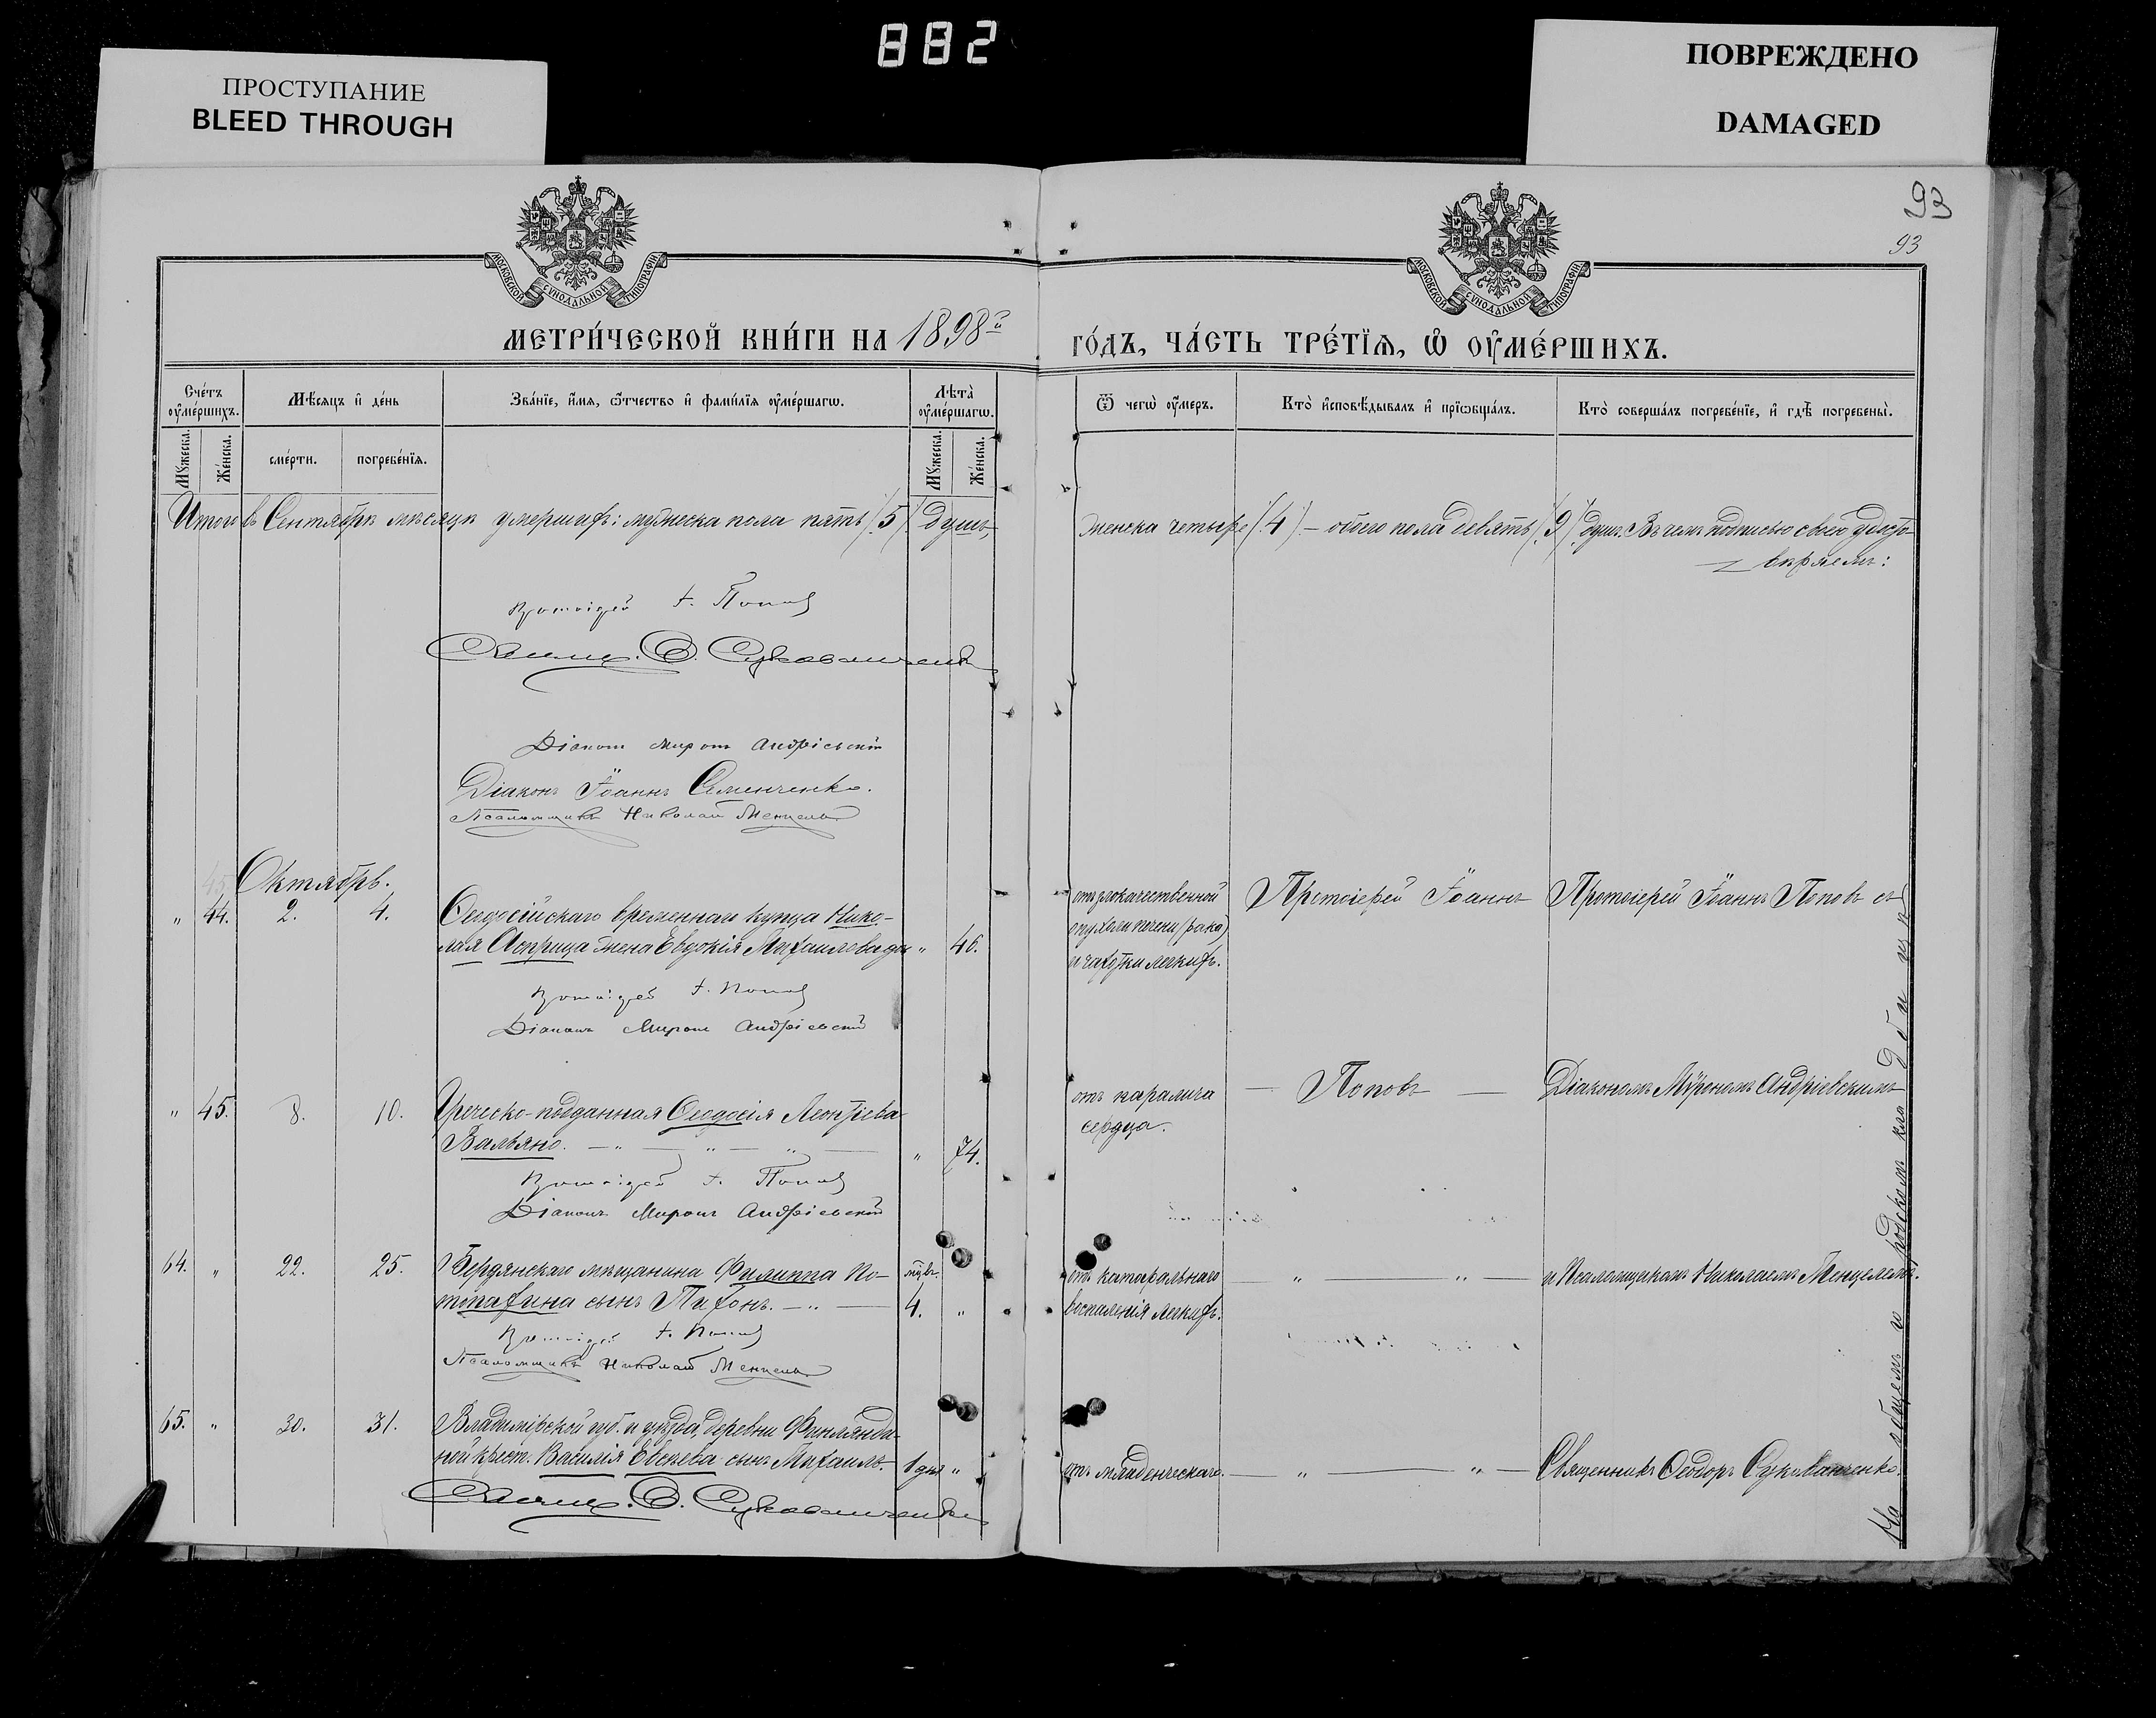 882
ПРОСТУПАНИЕ
BLEED THROUGH
ПОВРЕЖДЕНО
DAMAGED
93
93
МОСКОВСКОЙ СѴНОДАЛЬНОЙ ТИПОГРАФІИ
МОСКОВСКОЙ СѴНОДАЛЬНОЙ ТИПОГРАФІИ
МЕТРИ́ЧЕСКОЙ КНИ́ГИ НА 1898й
ГО́ДЪ, ЧА́СТЬ ТРЕ́ТЇѦ, Ѡ҆ ОУ҆МЕ́РШИХЪ.
Сче́тъ оу҆ме́ршихъ.
Мѣ́сяцъ и҆ де́нь
Зва́нїе, и҆́мя, ѻ҆́тчество и҆ фами́лїя оу҆ме́ршагѡ.
Лѣта̀ оу҆ме́ршагѡ.
Ѿ чегѡ̀ оу҆́меръ.
Кто̀ и҆сповѣ́дывалъ и҆ прїѡбща́лъ.
Кто̀ соверша́лъ погребе́нїе, и҆ гдѣ̀ погребены̀.
Мꙋ́жеска.
Же́нска.
сме́рти.
погребе́нїя.
Мꙋ́жеска.
Же́нска.
Итого въ Сентябрѣ мѣсяцѣ умершихъ: мужеска пола пять (5) душъ,
женска четыре (4) – обоего пола девять (9) душъ. Въ чемъ подписью своею удосто-
вѣряемъ:
Протоіерей І. Поповъ
Свящ. Ѳ. Сукованченко
Діаконъ Миронъ Андріевскій
Діаконъ Іоаннъ Семенченко.
Псаломщикъ Николай Менцель
Октябрь.
" 44. 2. 4. Ѳеодосійскаго временнаго купца Нико-
лая Асприца жена Евдокія Михаилова " 46.
отъ злокачественной
опухоли печени (рака)
и чахотки легкихъ.
Протоіерей Іоаннъ
Протоіерей Іоаннъ Поповъ съ
Протоіерей І. Поповъ
Діаконъ Миронъ Андріевскій
" 45. 8. 10. Греческо-подданная Ѳеодосія Леонтіева
Вальяно. " 74.
отъ паралича
сердца.
Поповъ
Діакономъ Мѵрономъ Андріевскимъ
Протоіерей І. Поповъ
Діаконъ Миронъ Андріевскій
64. " 22. 25. Бердянскаго мѣщанина Филиппа По-
сынъ Тихонъ. 4. "
отъ катаральнаго
воспаленія легкихъ.
" "
и Псаломщикомъ Николаемъ Менцелемъ.
Протоіерей І. Поповъ
Псаломщикъ Николай Менцель
65. " 30. 31. Владимірской губ. и уѣзда, деревни
крест. Василія Евсѣева сынъ Михаилъ. 1 дня "
отъ младенческаго.
" "
Священникъ Ѳеодоръ Сукованченко.
Свящ. Ѳ. Сукованченко
На общемъ городскомъ кладбищѣ